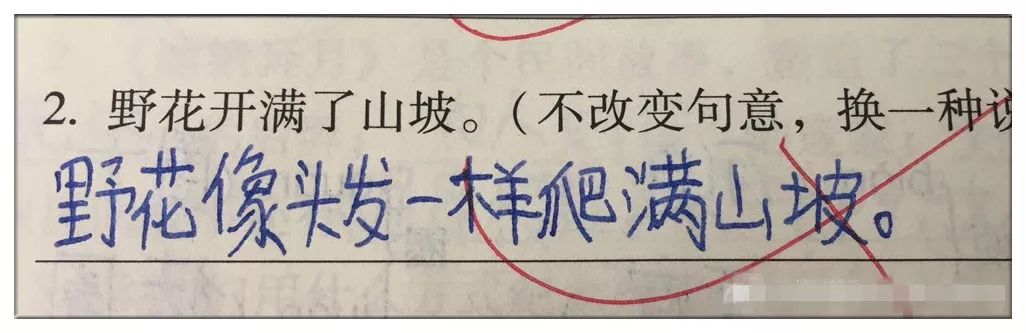 2. 野花开满了山坡。(不改变句意，换一种说
野花像头发一样爬满山坡。